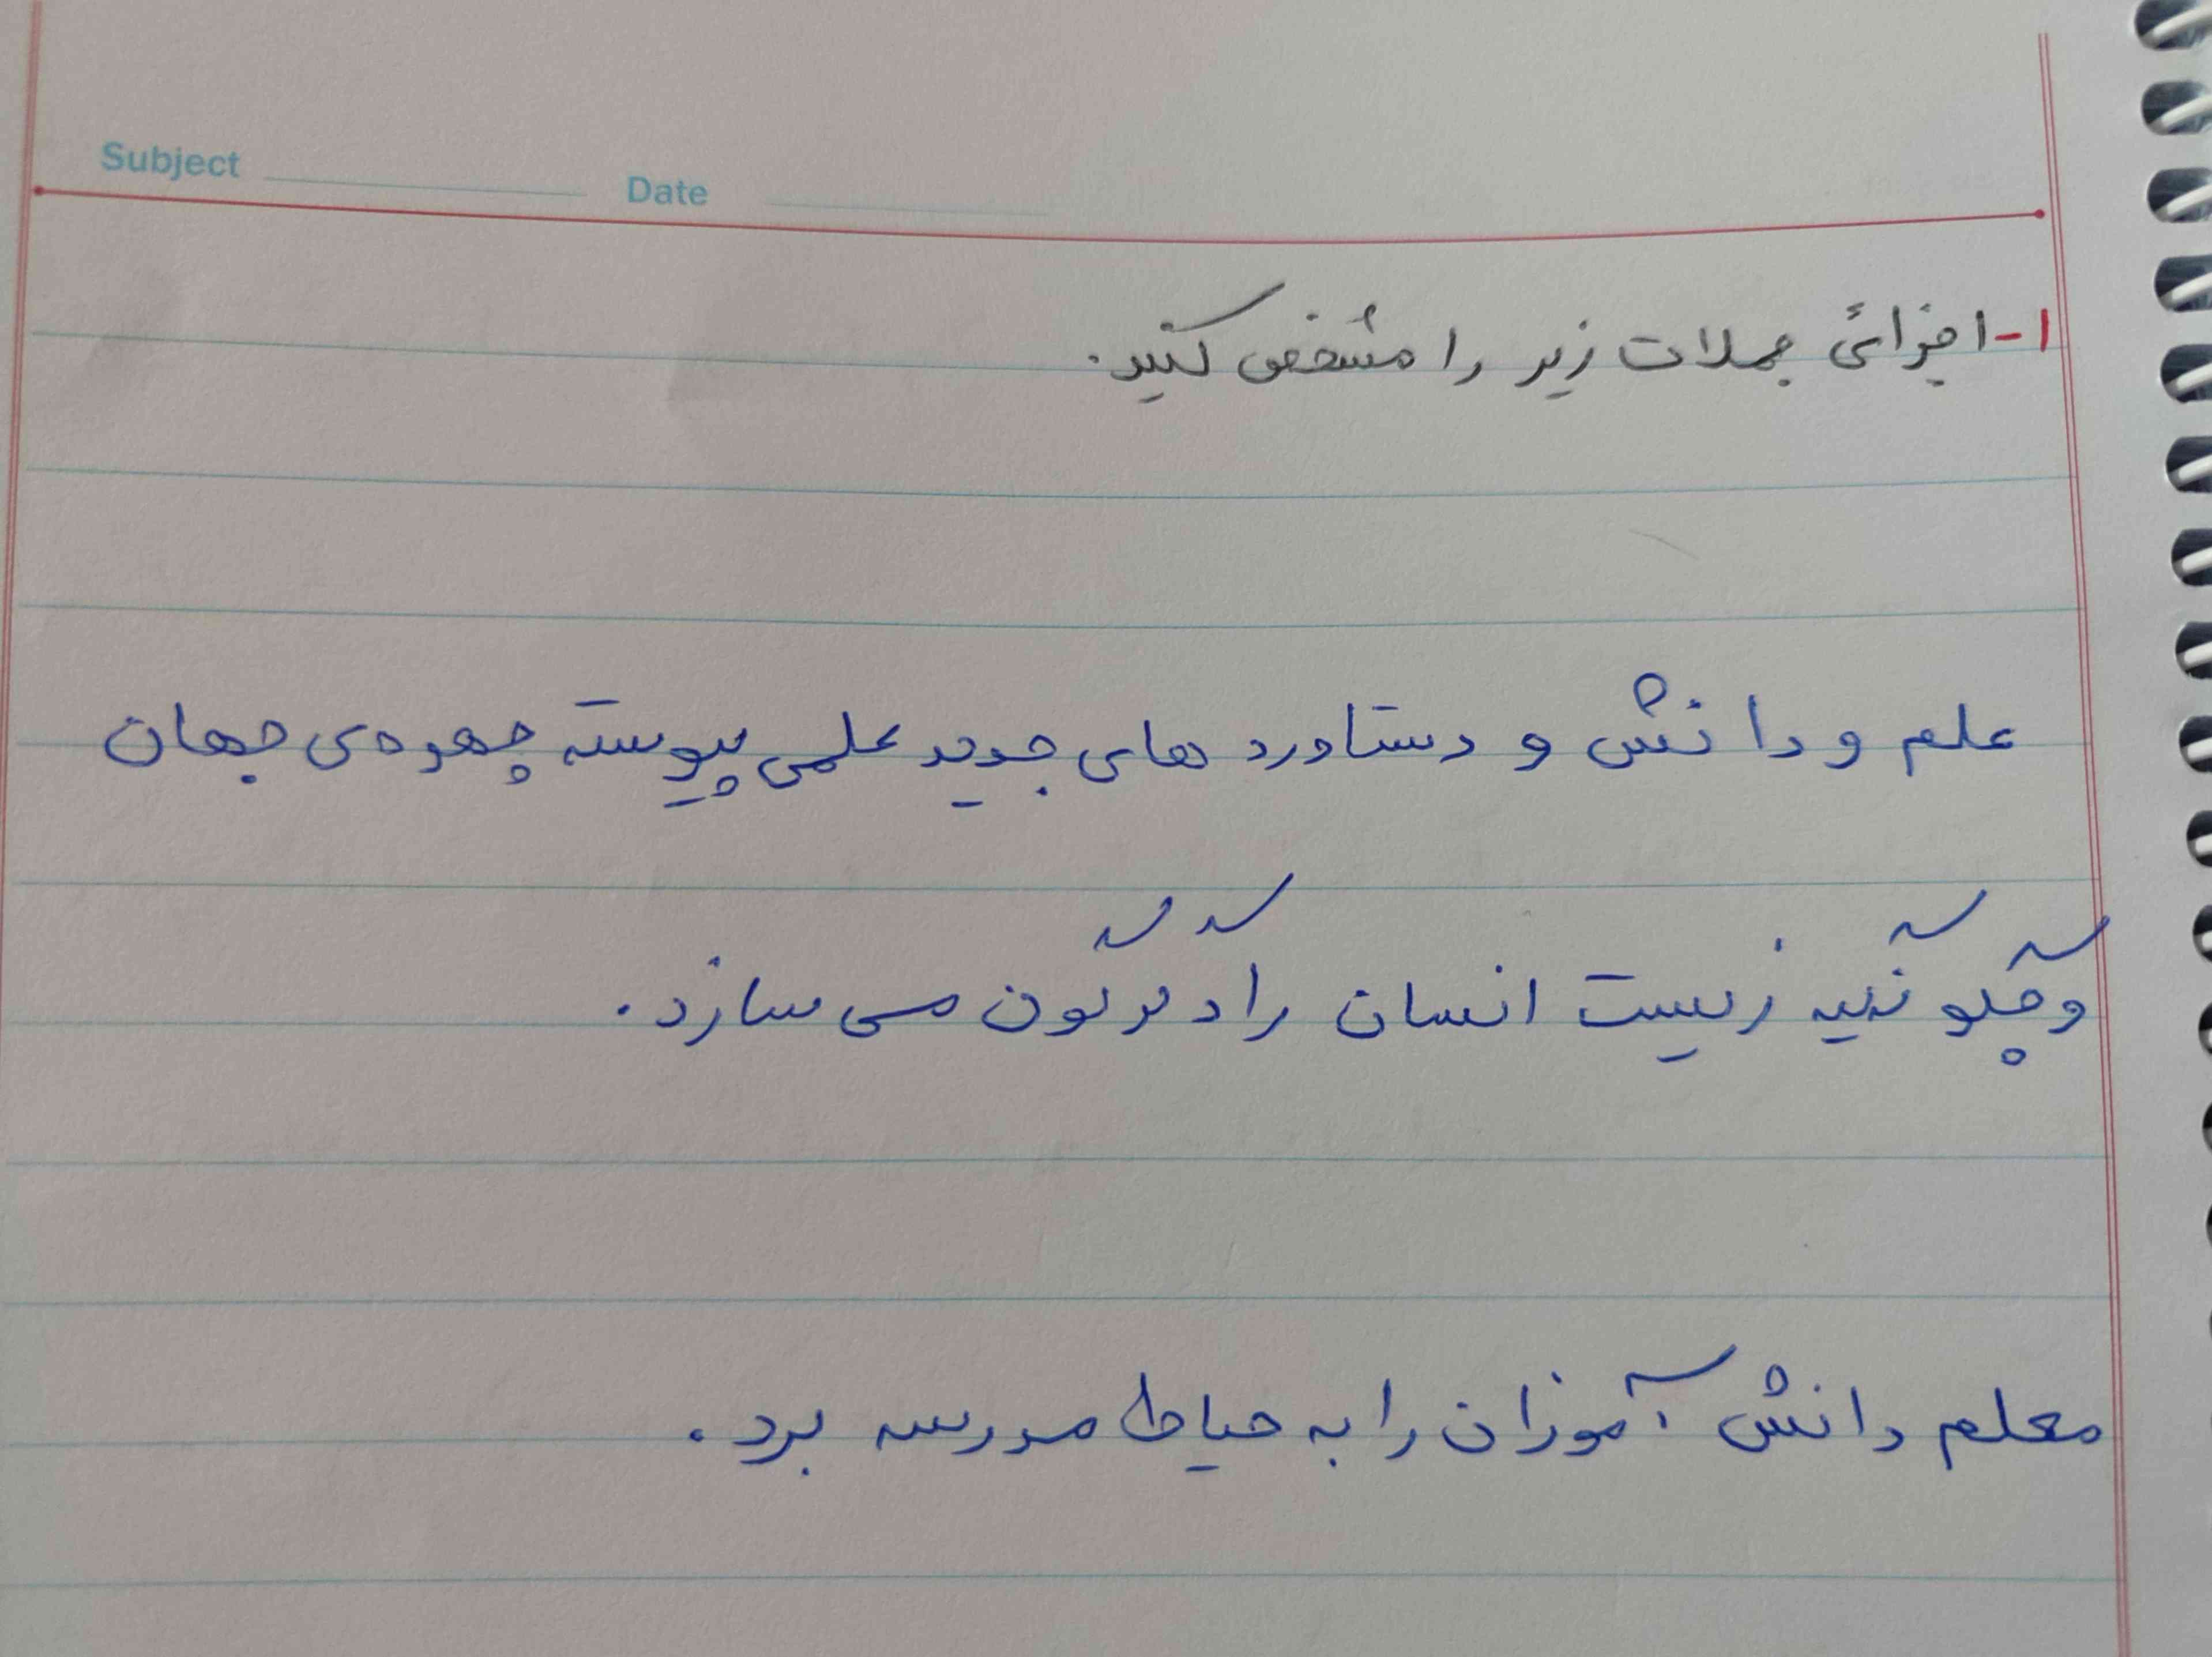 Subject Date
۱-اجزائ جملات زیر را مشخص کنید.
علم و دانش و دستاورد های جدید علمی پیوسته چهره ی جهان
و چگونگی زیست انسان را دگرگون می سازد.
معلم دانش آموزان را به حیاط مدرسه برد.